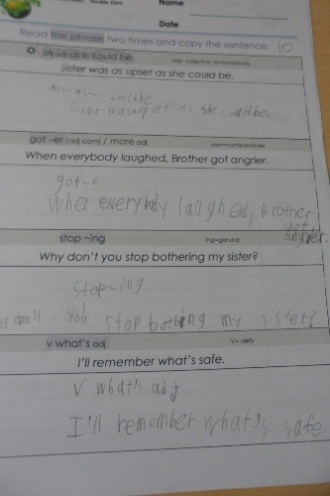 Name
Date
Read the phrase two times and copy the sentence. 10
as as as is could be
Sister was as upset as she could be.
Sister was upset as she could be.
got ~er (adj com) / more adj
When everybody laughed, Brother got angrier.
got~e
When everybody laughed, Brother
got
angrier.
stop ~ing ing=gerund
Why don't you stop bothering my sister?
stop~ing
you stop bothing my sister?
v what's adj V= verb
I'll remember what's safe.
V what's adj
I'll remember what's safe.